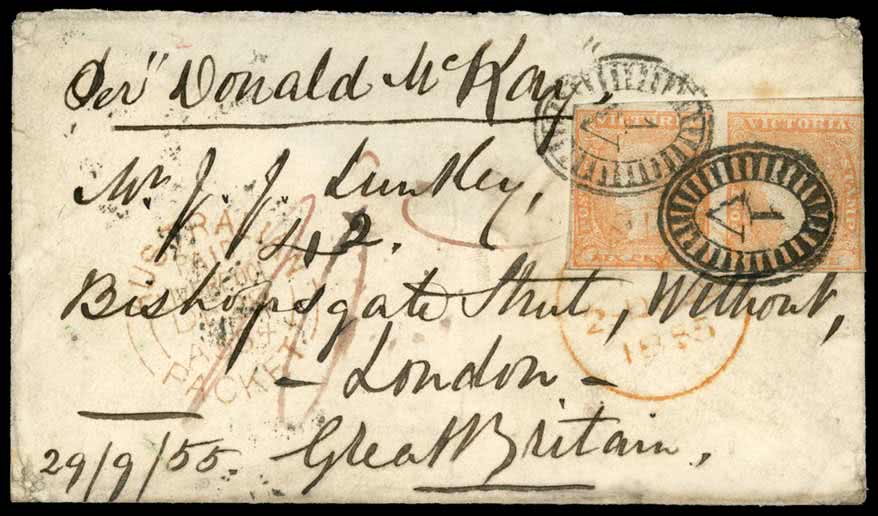 Per "Donald McKay",
Mr. J. J. Lunley,
42.
Bishopsgate Street, Without,
- London -
Great Britain.
29/9/55.
VICTORIA
STAMP
1
V
1
V
PAID
PACKET
1855